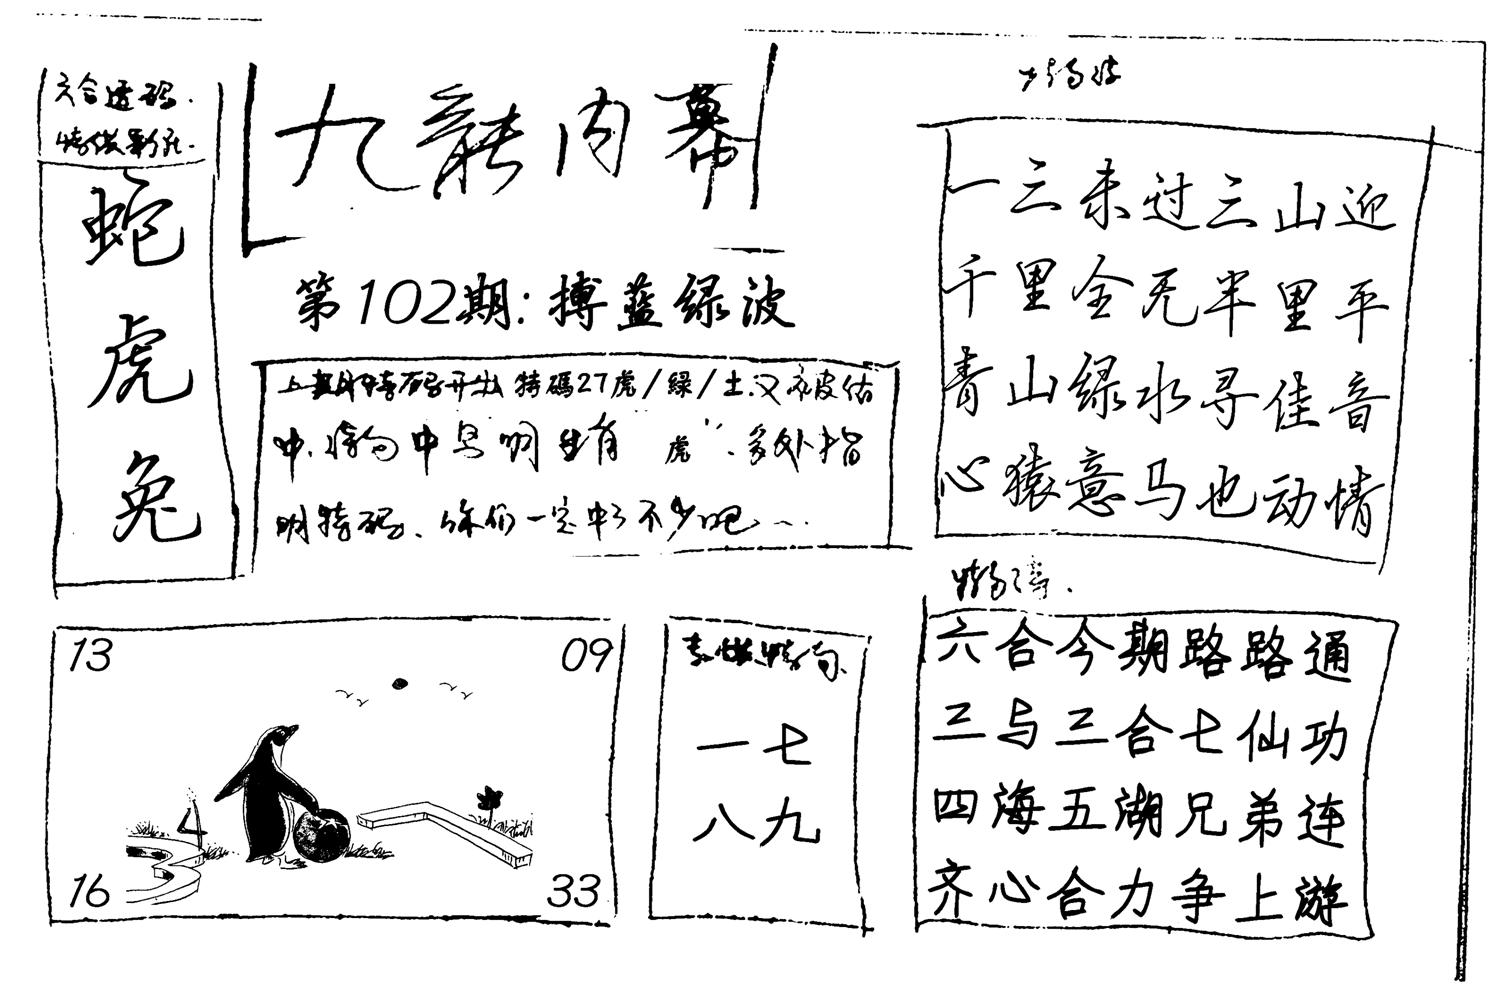 六合透码.
蛇
虎
兔
九龍内幕
第102期:搏蓝绿波
上期特码开出 特碼27虎/緑/土.又被估
中.特句中 明 生肖"虎". 外指
明特码、你们一定中了不少吧
一三未过三山迎
千里全无半里平
青山绿水寻佳音
心猿意马也动情
13
09
16
33
4
一七
八九
六合今期路路通
三与三合七仙功
四海五湖兄弟连
齐心合力争上游